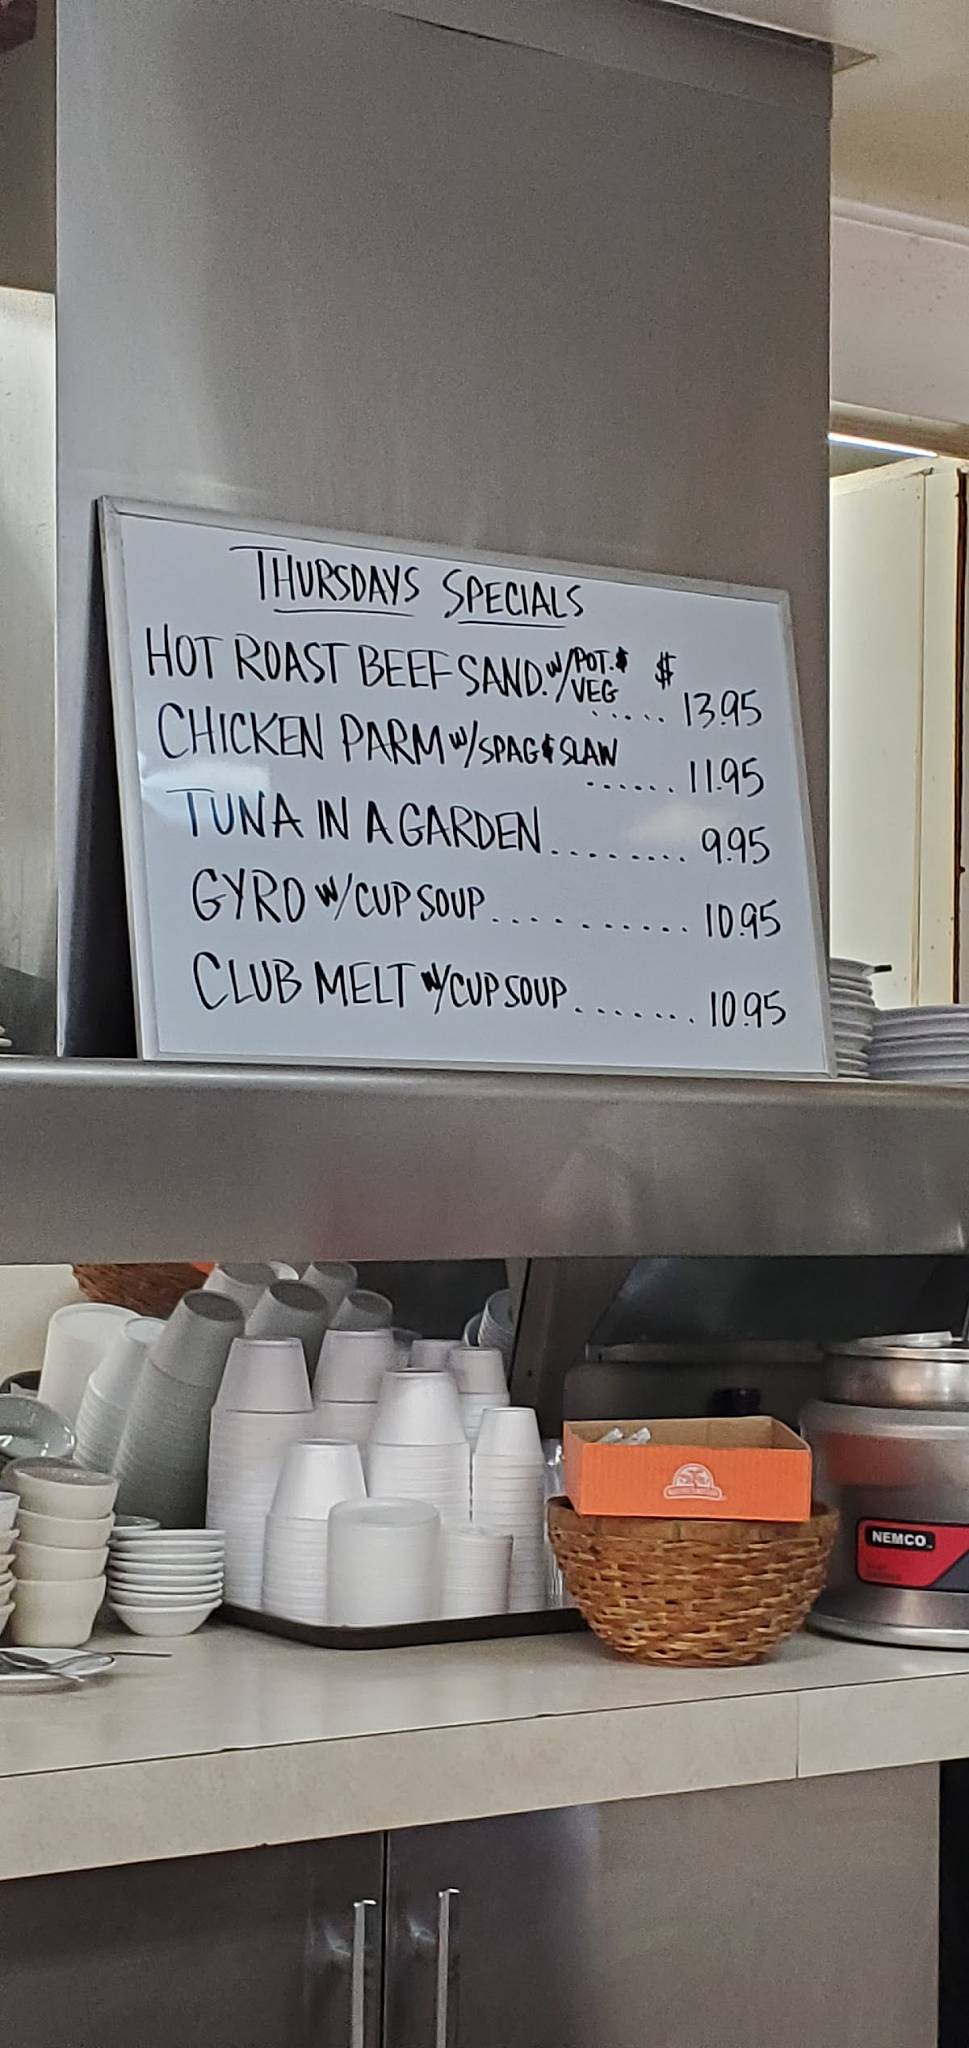 THURSDAYS SPECIALS
HOT ROAST BEEF SAND. w/ POT. & VEG ..... $ 13.95
CHICKEN PARM w/ SPAG & SLAW ...... 11.95
TUNA IN A GARDEN ........ 9.95
GYRO w/ CUP SOUP .......... 10.95
CLUB MELT w/ CUP SOUP ....... 10.95
NEMCO